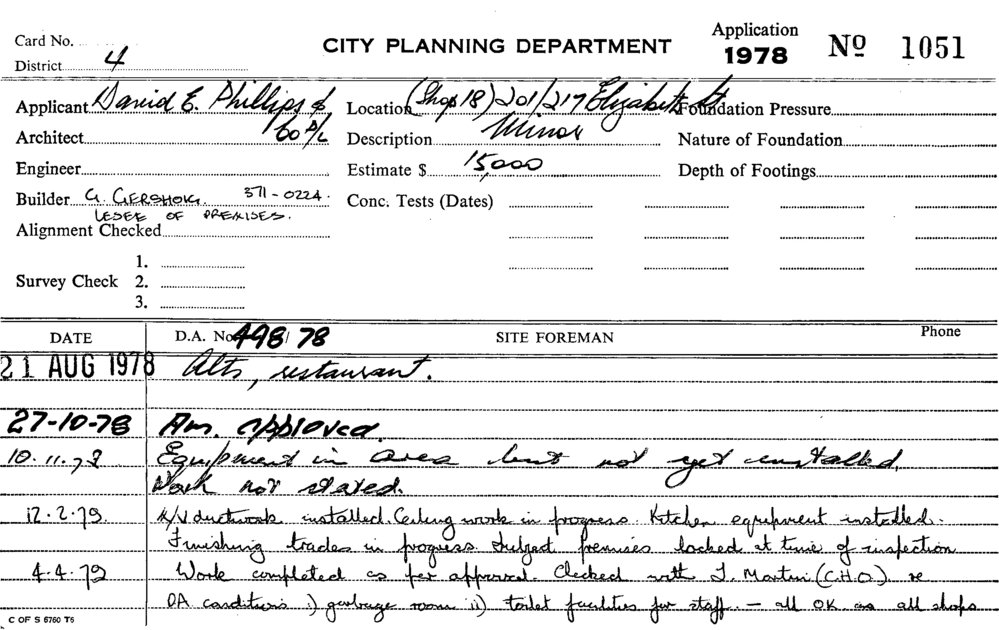 Card No.
CITY PLANNING DEPARTMENT
Application 1978 Nº 1051
District 4
Applicant David E. Phillips & Co P/L
Location (Shop 18) 201/217 Elizabeth St
Foundation Pressure
Architect
Description Minor
Nature of Foundation
Engineer
Estimate $ 15,000
Depth of Footings
Builder G. GERSHON. 371-0224.
LESEE OF PREMISES.
Conc. Tests (Dates)
Alignment Checked
Survey Check 1.
2.
3.
DATE D.A. No. 498/78 SITE FOREMAN Phone
21 AUG 1978 Alts, restaurant.
27-10-78 Am. approved.
10.11.78 Equipment in area but not yet installed.
Work not stated.
12.2.79. M/V ductwork installed. Ceiling work in progress. Kitchen equipment installed.
Finishing trades in progress. Subject premises locked at time of inspection
4.4.79 Work completed as per approval. Checked with J. Martin (C.H.O.) re
DA conditions i) garbage room ii) toilet facilities for staff. - all OK as all shops
C OF S 6760 T5